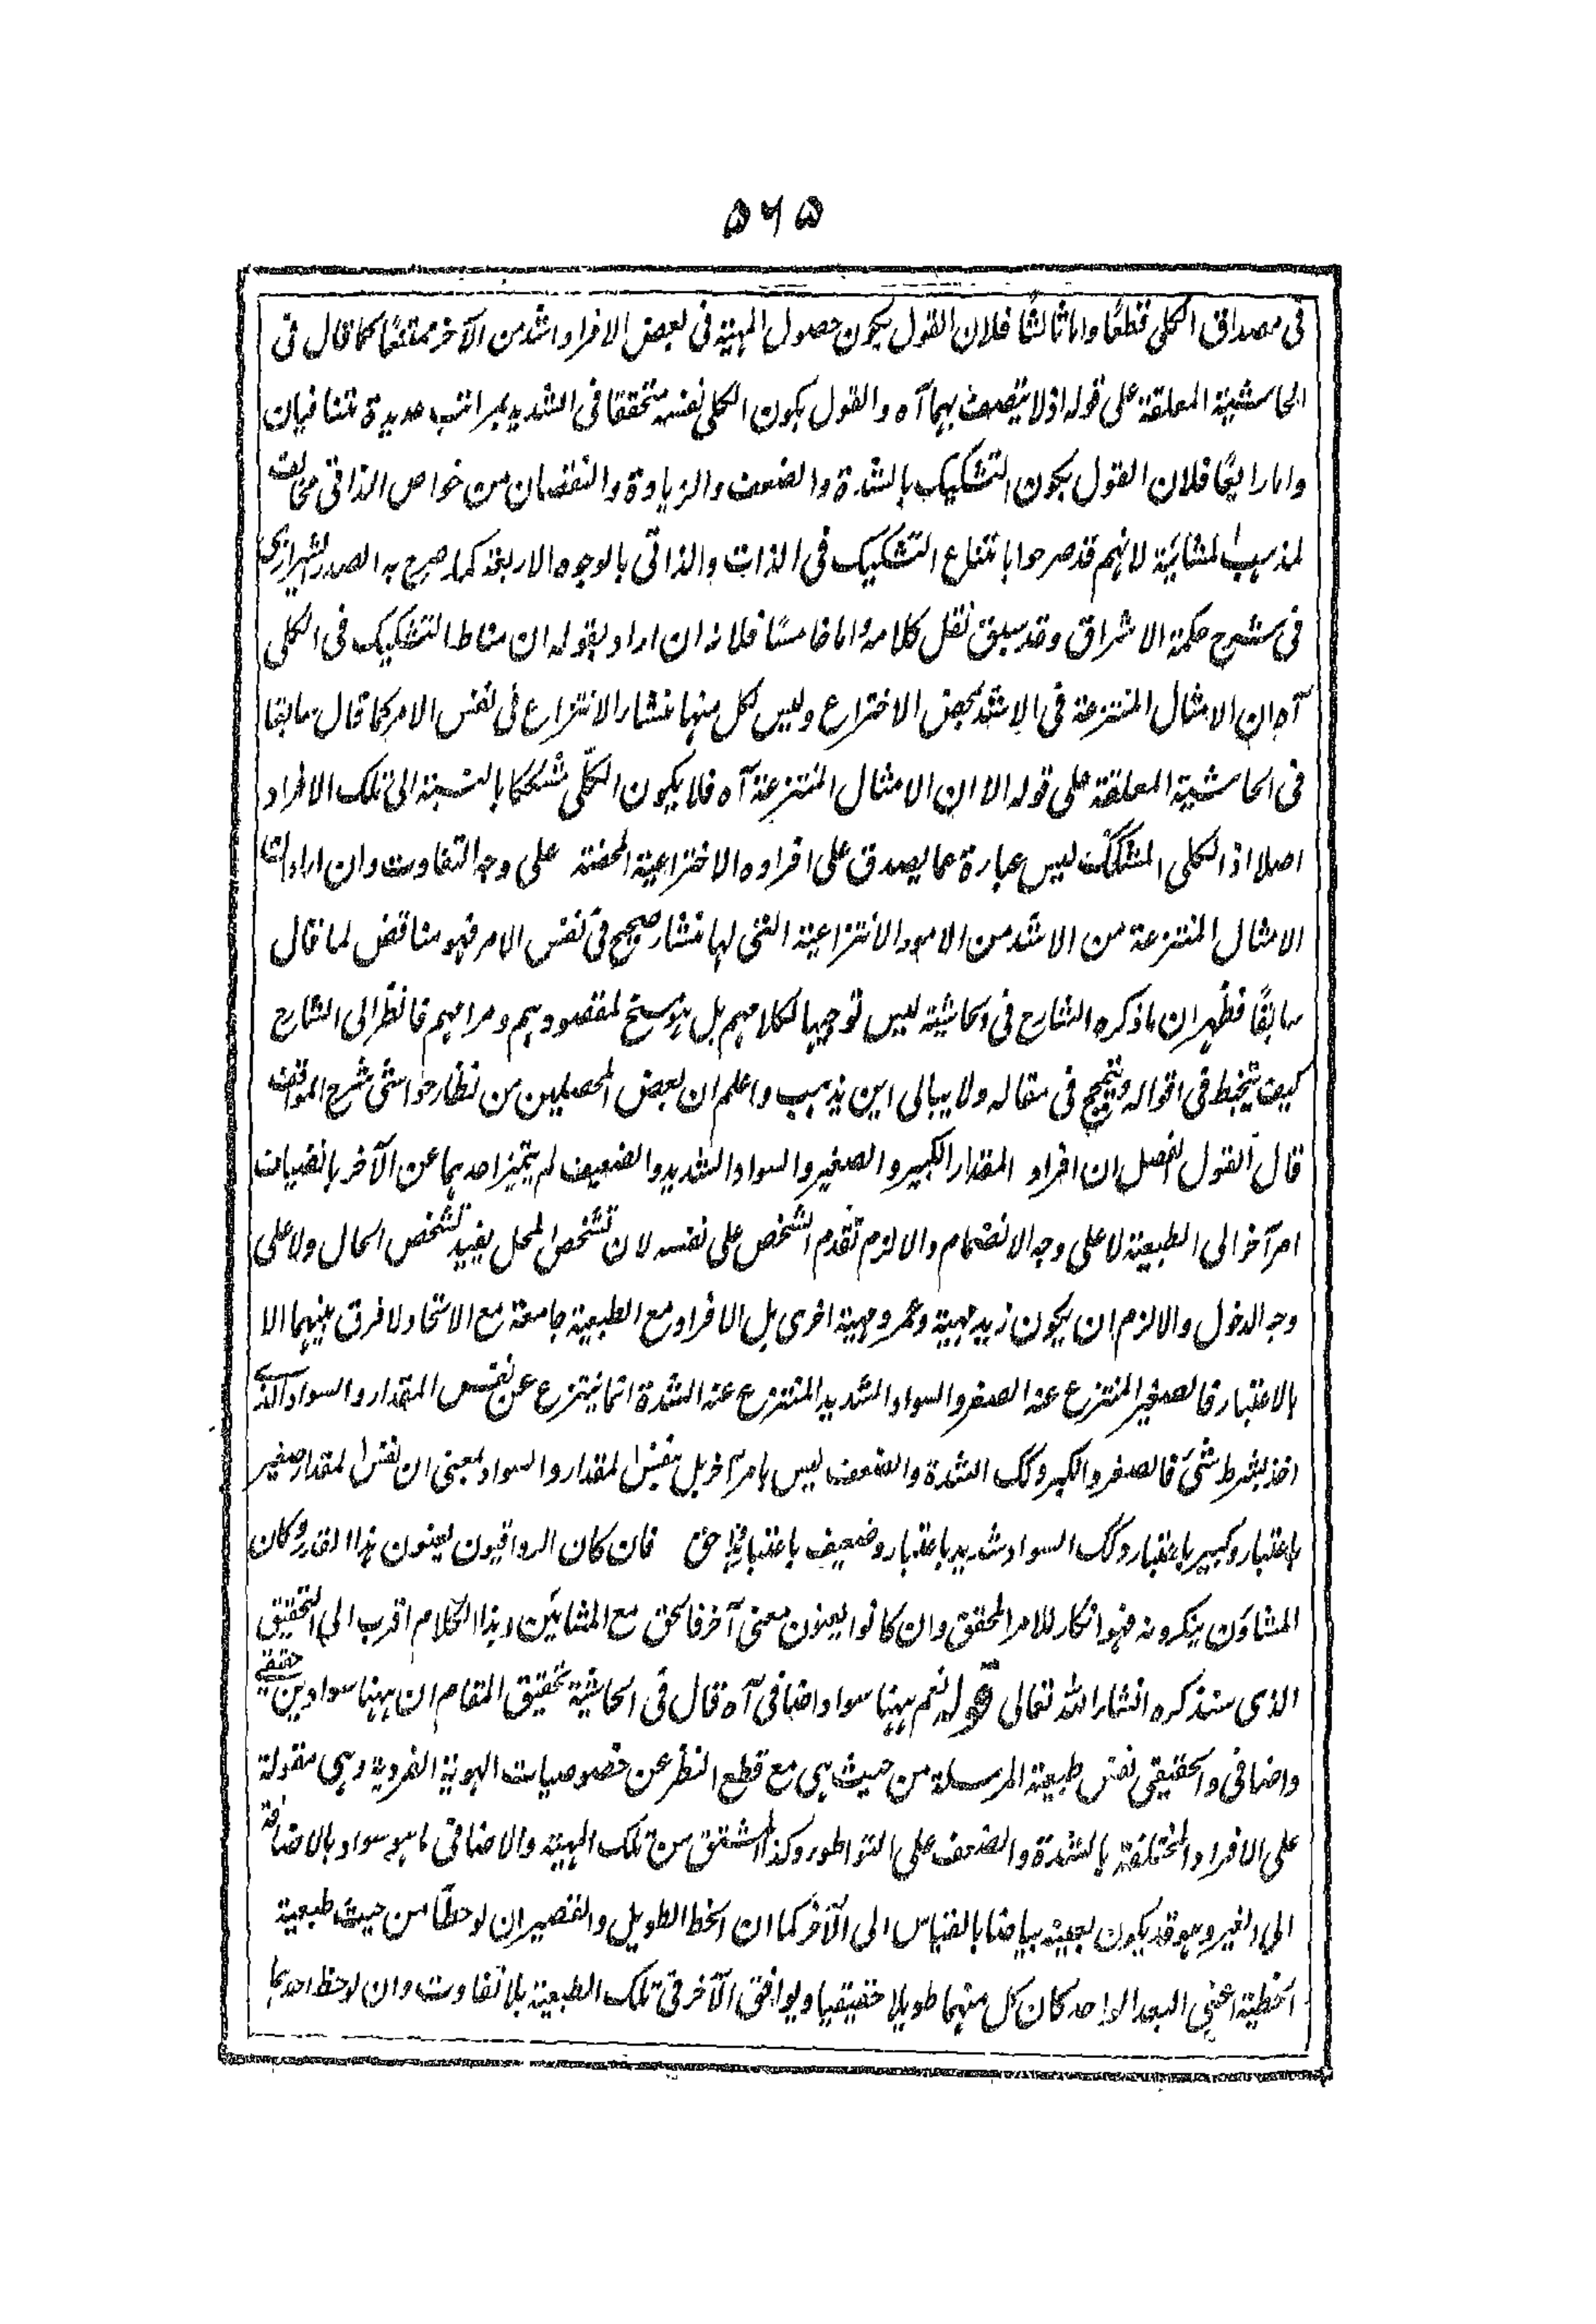 ۵۶۵
فى مصداق الكلى قطعًا واما ثالثًا فلان القول بكون حصول المهية فى بعض الافراد اشد من الآخر ممتنعًا كما قال فى
الحاشية المعلقة على قوله اذ لا يتصف بهما آه والقول بكون الكلى نفسه متحققا فى الشديد بمراتب عديدة متنافيان
واما رابعًا فلان القول بكون التشكيك بالشدة والضعف والزيادة والنقصان من خواص الذاتى مخالف
لمذهب المشائية لانهم قد صرحوا بامتناع التشكيك فى الذات والذاتى بالوجوه الاربعة كما صرح به الصدر الشيرازى
فى شرح حكمة الاشراق وقد سبق نقل كلامه واما خامسًا فلانه ان اراد بقوله ان مناط التشكيك فى الكلى
آه ان الامثال المنتزعة فى الاشد بمحض الاختراع وليس لكل منها منشار الانتزاع فى نفس الامر كما قال سابقا
فى الحاشية المعلقة على قوله الا ان الامثال المنتزعة آه فلا يكون الكلى مشككا بالنسبة الى تلك الافراد
اصلا اذ الكلى المشكك ليس عبارة عما يصدق على افراده الاختراعية المحضة على وجه التفاوت وان اراد ان
الامثال المنتزعة من الاشد من الامور الانتزاعية التى لها منشار صحيح فى نفس الامر فهو مناقض لما قال
سابقًا فظهر ان ما ذكره الشارح فى الحاشية ليس توجيها لكلامهم بل هو مسخ لمقصودهم ومرامهم فانظر الى الشارح
كيف يتخبط فى اقواله ويتمجمج فى مقاله ولا يبالى اين يذهب واعلم ان بعض المحصلين من نظار حواشى شرح المواقف
قال القول الفصل ان افراد المقدار الكبير والصغير والسواد الشديد والضعيف لم يتميز احدهما عن الآخر بانضياف
امر آخر الى الطبيعة لا على وجه الانضمام والا لزم تقدم الشخص على نفسه لان تشخص المحل يفيد تشخص الحال ولا على
وجه الدخول والا لزم ان يكون زيد مهية وعمرو مهية اخرى بل الافراد مع الطبيعة جامعة مع الاتحاد لا فرق بينهما الا
بالاعتبار فالصغير المنتزع عنه الصغر والسواد الشديد المنتزع عنه الشدة انما ينتزع عن نفس المقدار والسواد الذے
اخذ بشرط شئ فالصغر والكبر وكك الشدة والضعف ليس بامر آخر بل بنفس المقدار والسواد بمعنى ان نفس المقدار صغير
باعتبار وكبير باعتبار وكك السواد شديد باعتبار وضعيف باعتبار فهذا حق فان كان الرواقيون يعنون هذا القدر وكان
المشاؤن ينكرونه فهو انكار للامر المحقق وان كانوا يعنون معنى آخر فالحق مع المشائين وهذا الكلام اقرب الى التحقيق
الذى سنذكره انشار الله تعالى قوله نعم ههنا سواد اضافى آه قال فى الحاشية تحقيق المقام ان ههنا سوادين حقيقے
واضافى والحقيقى نفس طبيعة المرسلة من حيث هى مع قطع النظر عن خصوصيات الهوية الفردية وهى مقولة
على الافراد المختلفة بالشدة والضعف على التواطور وكذا المشتق من تلك المهية والاضافى ما هو سواد بالاضافة
الى الغير وهو قد يكون بعينه بياضا بالقياس الى الآخر كما ان الخط الطويل والقصير ان لوحظا من حيث طبعية
الخطية اعنى البعد الواحد كان كل منهما طويلا حقيقيا ويوافق الآخر فى تلك الطبعية بلا تفاوت وان لوحظ احدهما